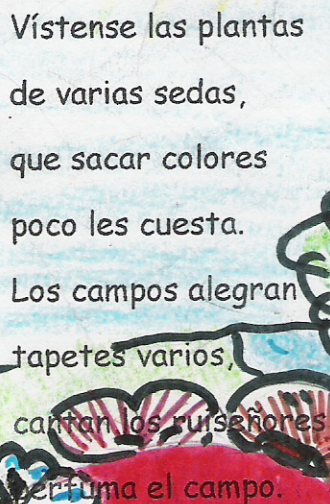 Vístense las plantas
de varias sedas,
que sacar colores
poco les cuesta.
Los campos alegran
tapetes varios,
cantan los ruiseñores
perfuma el campo.